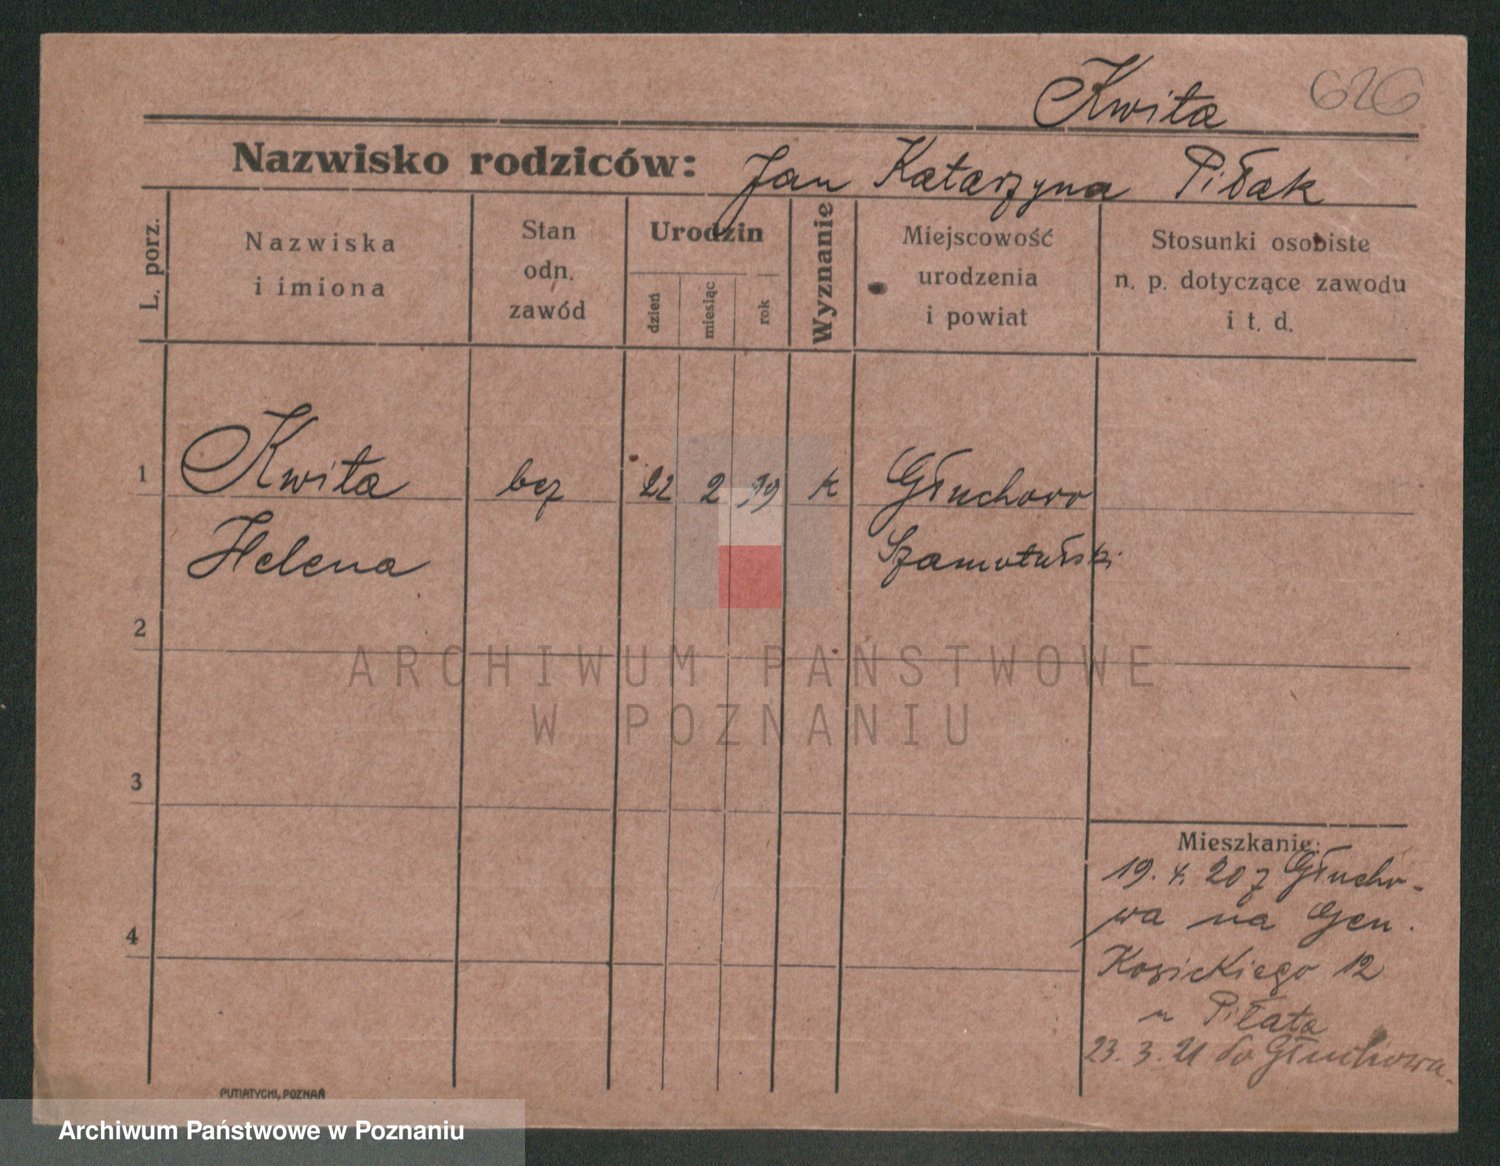 Kwita 626
Nazwisko rodziców: Jan Katarzyna Piłak
L. porz.
Nazwiska i imiona
Stan odn. zawód
Urodzin
dzień
miesiąc
rok
Wyznanie
Miejscowość urodzenia i powiat
Stosunki osobiste n. p. dotyczące zawodu i t. d.
1 Kwita bez 22 2 99 k Głuchowo
Helena Szamotulski
2
ARCHIWUM PAŃSTWOWE
W POZNANIU
3
Mieszkanie:
19. 4. 20 z Głucho-
wa na Gen.
4
Kosickiego 12
u Piłata
23. 3. 21 do Głuchowa.
PUTIATYCKI, POZNAŃ
Archiwum Państwowe w Poznaniu